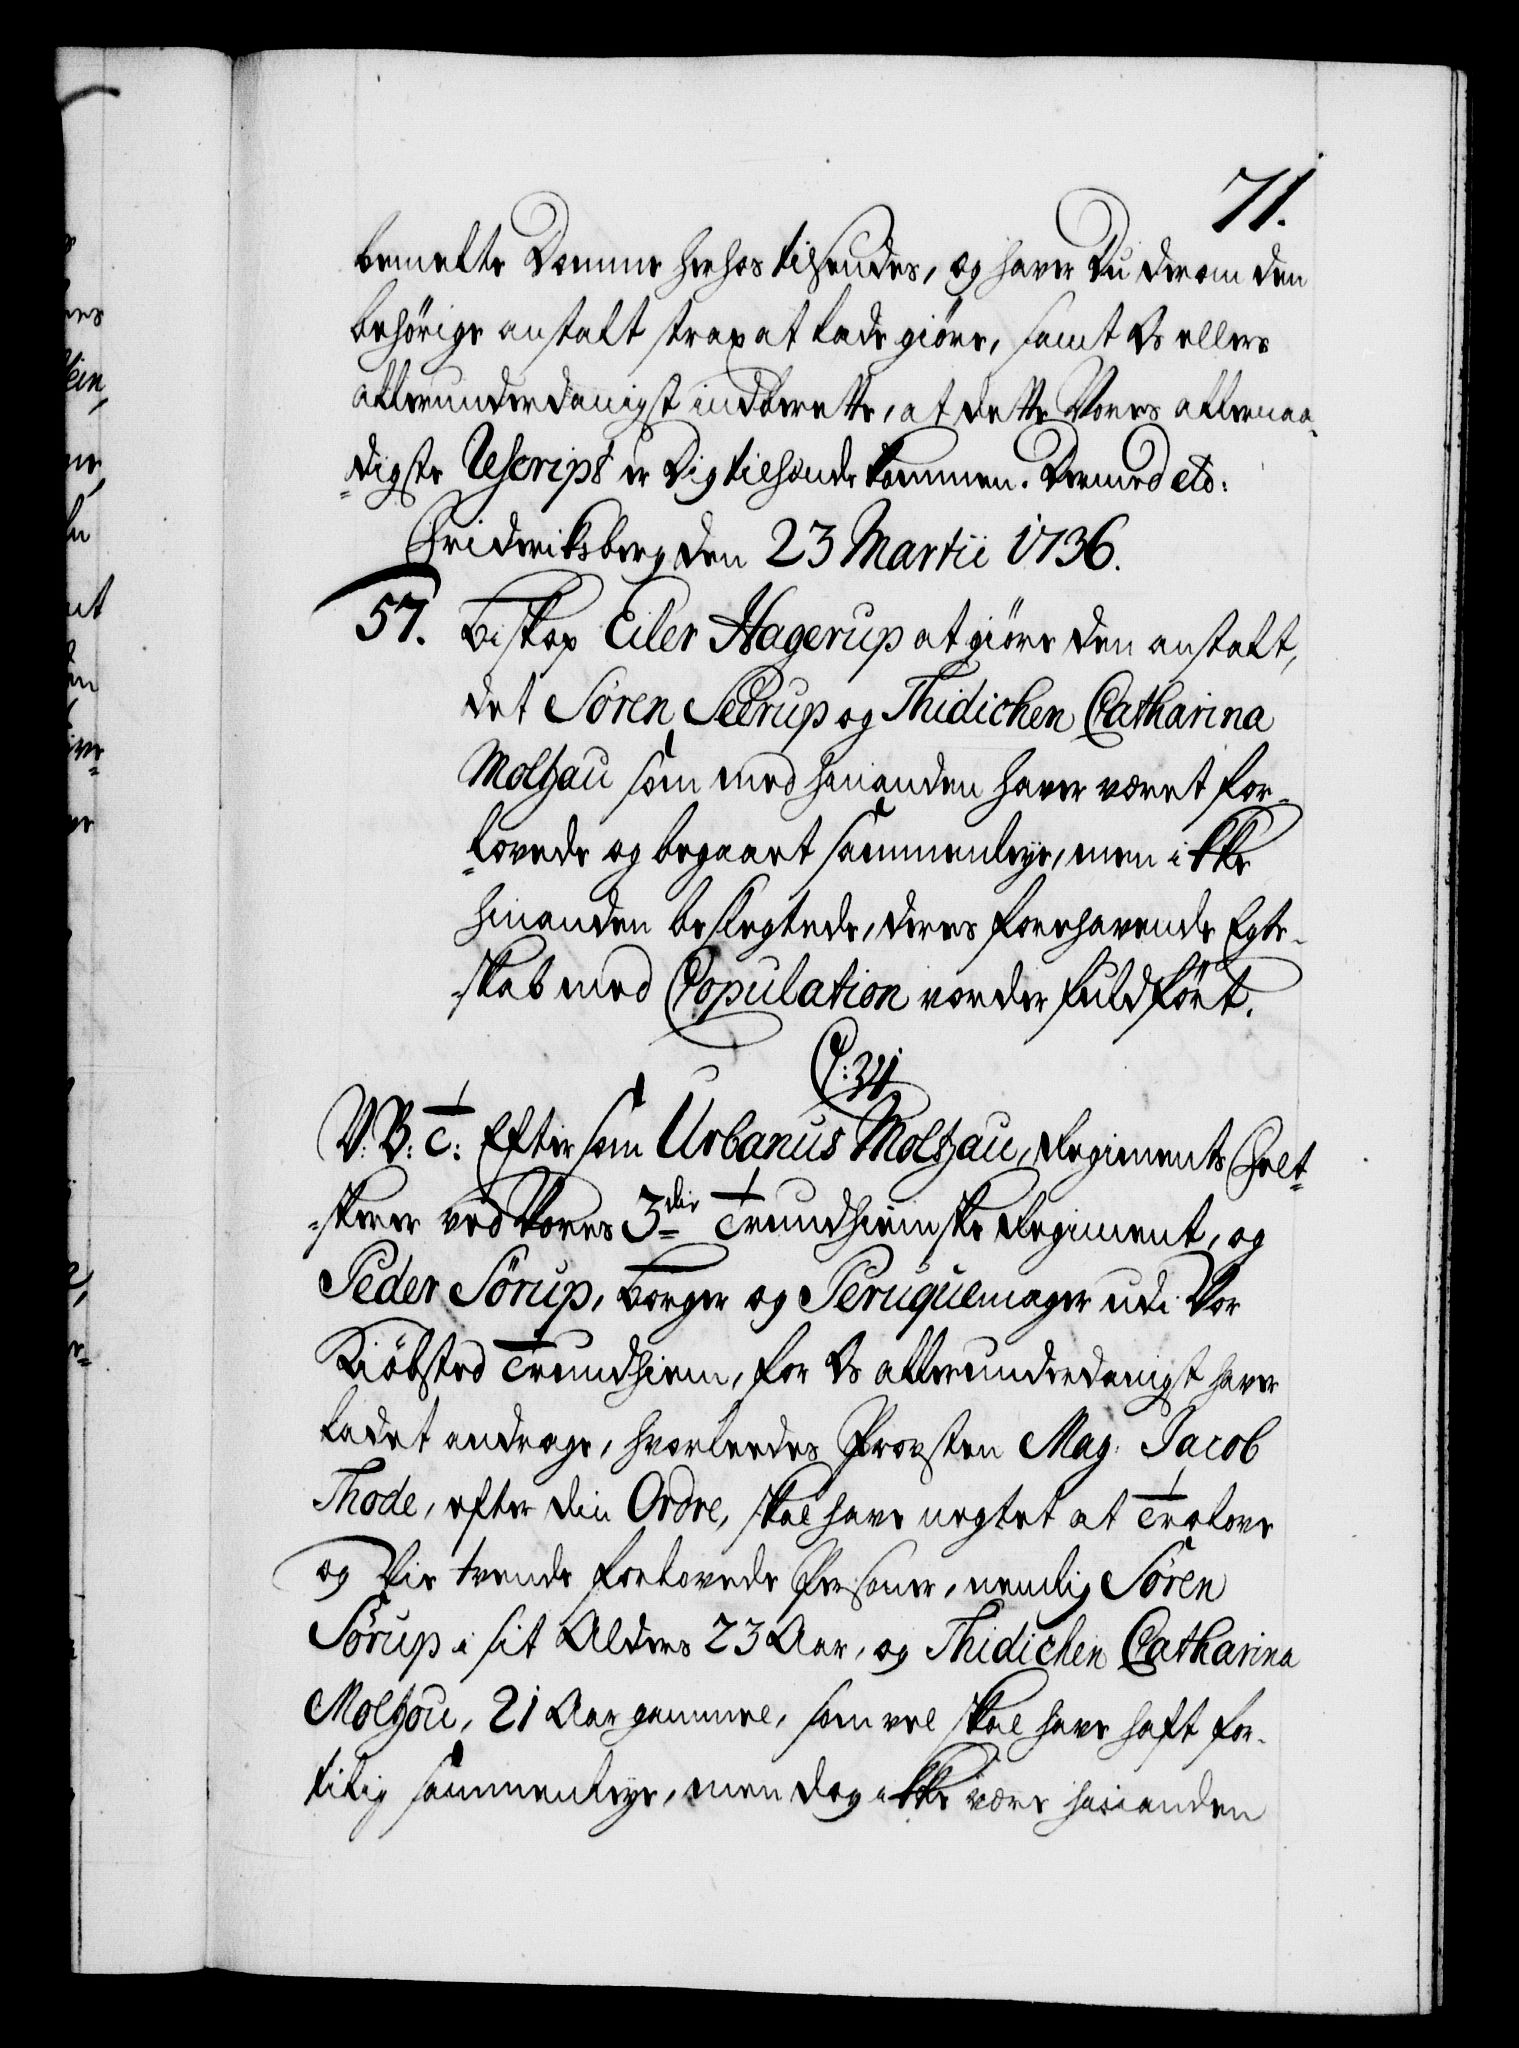 71.
bemelte Domme herhos tilsendes, og haver Du derom den
behörige anstalt strax at lade giöre, samt Os ellers
allerunderdanigst indberette, at dette Vores allernaa-
-digste Rescript er Dig tilhænde kommen. Dermed etc:
Friderichsberg den 23 Martii 1736.
57. Biskop Eiler Hagerup at giöre den anstalt,
det Sören Sörup og Thidichen Catharina
Moltzau som med hinanden haver været for-
-lovede og begaaet sammenleye, men ikke
hinanden beslegtede, deres forehavende Egte-
-skab med Copulation vorder fuldfört.
C: 4
V: B: C: Eftersom Urbanus Moltzau, Regiments Felt-
-skerer ved Vores 3die Trundhiemske Regiment, og
Peder Sörup, borger og Peruquemager udi Vor
Kiöbsted Trundhiem, for Os allerunderdanigst haver
ladet andrage, hvorleedes Provsten Mag: Jacob
Thode, efter din Ordre, skal have negtet at Trolove
og vie tvende forlovede Personer, nemlig Sören
Sörup i sit Alders 23 Aar, og Thidichen Catharina
Moltzou, 21 Aar gammel, som vel skal have haft for-
tilig sammenleye, men dog ikke være hinanden